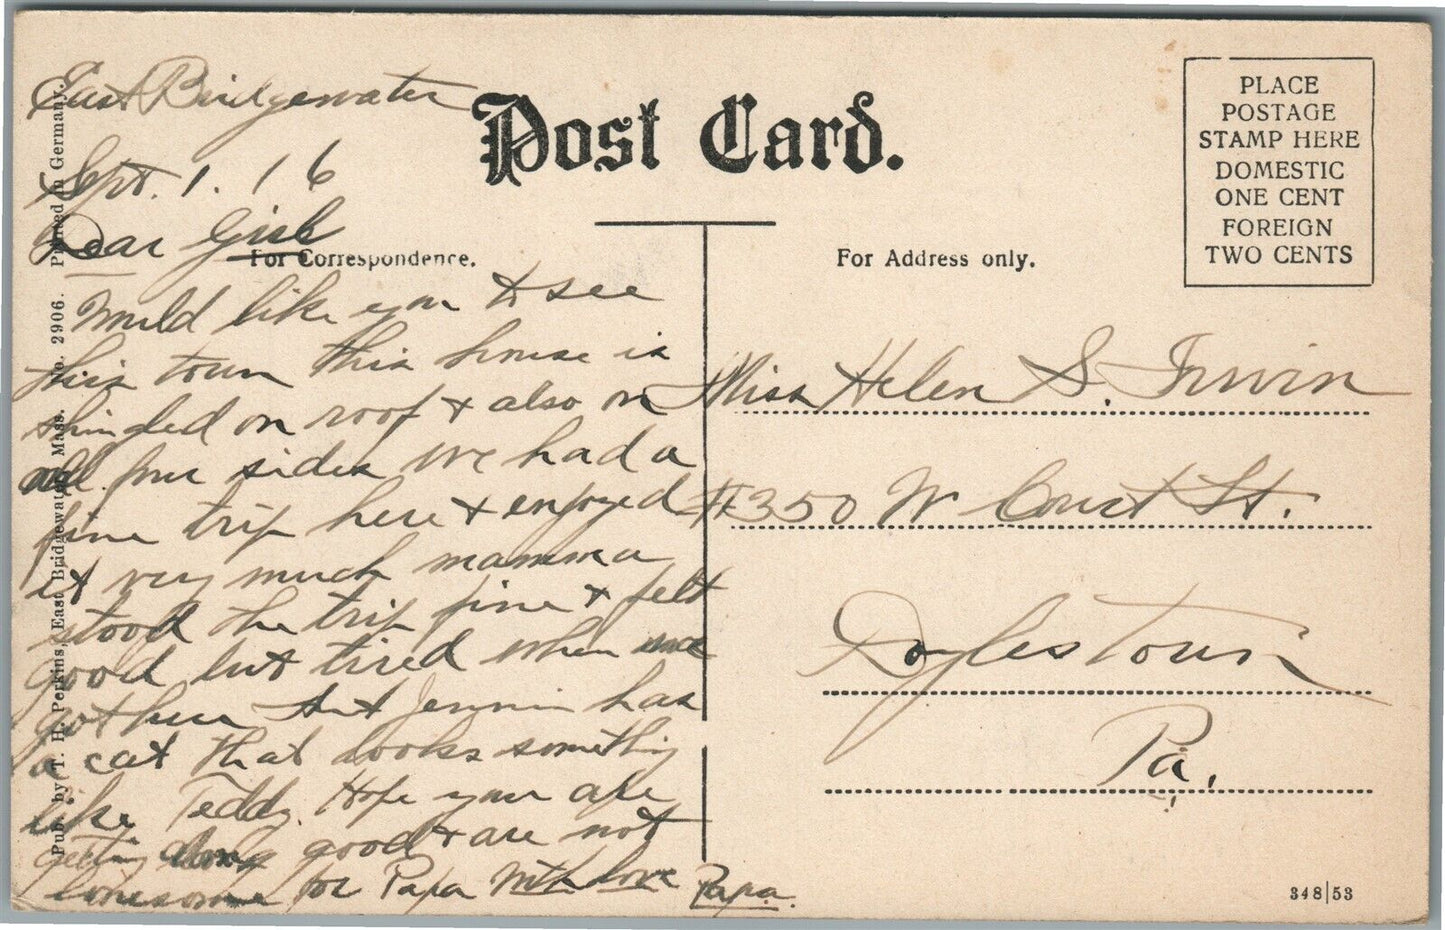 East Bridgewater
Sept. 1. 16
Dear Girl
Would like you to see
this town this house is
shingled on roof + also on
all four sides we had a
fine trip here + enjoyed
it very much mamma
stood the trip fine + felt
good but tired when we
got here Aunt has
a cat that looks something
like Teddy. Hope you are
getting along good + are not
lonesome for Papa With love Papa.
Post Card.
For Correspondence.
For Address only.
PLACE
POSTAGE
STAMP HERE
DOMESTIC
ONE CENT
FOREIGN
TWO CENTS
Miss Helen S. Irwin
#350 W Court St.
Doylestown
Pa.
348|53
Pub. by T. H. Perkins, East Bridgewater, Mass. No. 2906. Printed in Germany.